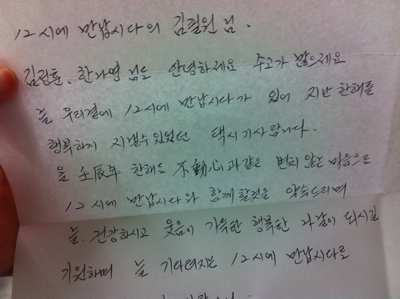 12시에 만납시다의 김필원 님.
김정훈, 한가영님도 안녕하세요 수고가 많으세요
늘 우리곁에 12시에 만납시다가 있어 지난 한해를
행복하게 지낼수 있었던 택시기사랍니다.
올 壬辰年 한해도 不動心과 같은 변치 않는 마음으로
12시에 만납시다와 함께 할것을 약속드리며
늘. 건강하시고 웃음이 가득한 행복한 나날이 되시길
기원하며 늘 기다려지는 12시에 만납시다로